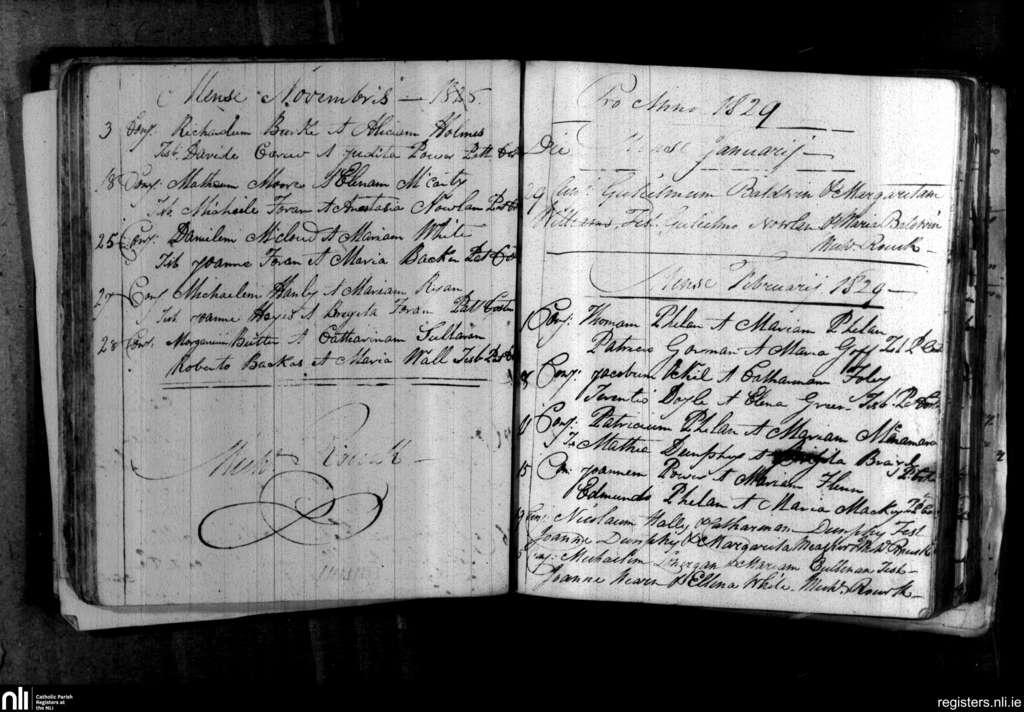 Mense Novembris — 18
3 Conj. Richardum Burke et Aliciam Holmes
Tsb. Davide Carew et Judita Power Patt Cos
18 Conj. Matheum Moore et Elenam McCarty
Tsb Michaele Foran et Anastasia Nowlan Pat
25 Conj. Danielem McCloud et Mariam White
Tsb Joanne Foran et Maria Backas Pat Cos
27 Conj. Michaelem Hanly et Mariam Ryan
Tsb Joanne Hayes et Brigita Foran Patt Costin
28 Conj. Butler et Catharinam Sullavan
Roberto Backas et Maria Wall Tsb Pat Cos
Michl Rourk —
Pro Anno 1829
Die Mense Januarij —
29 Conj. Gulielmum Baldwin & Margaritam
Williams, Tsb. Gulielmo Nowlan & Maria Baldwin
Michl Rourk —
Mense Februarij 1829 —
1 Conj. Thomam Phelan et Mariam Phelan
Patricio Gorman et Maria Goff Tsb P Cos
8 Conj. Jacobum et Catharinam Foley
Terentio Doyle et Elena Green Tsb. Pat Cos
11 Conj. Patricium Phelan et Mariam McNamara
Tsb Mathia Dunphy et Brigita P Cos
15 Con. Joannem Power et Mariam Flynn
Edmundo Phelan et Maria Mackey Tsb
Conj. Nicolaum Hally & Catharinam Dunphy Test
Joanne Dunphy & Margarita Meagher Michl Rourk
Conj. Michaelem Lonergan & Mariam Cullinan Test
Joanne & Ellena White. Michl Rourk —
nli
Catholic Parish
Registers at
the NLI
registers.nli.ie